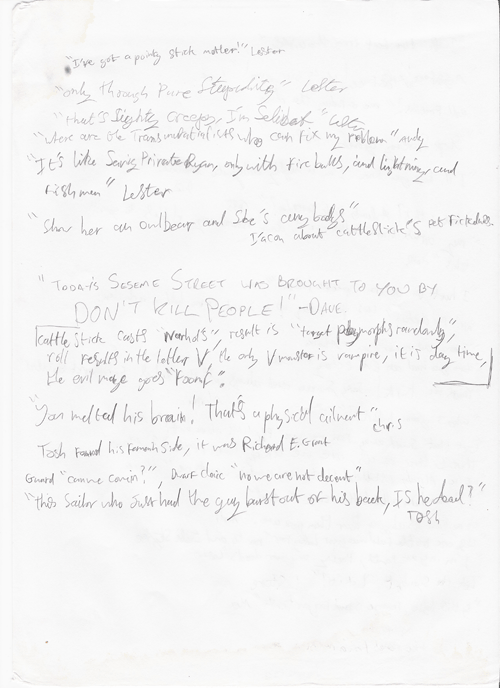 "I've got a pointy stick mother!" Lester
"only through Pure Stupidity" Lester
"that's slightly creepy, I'm
"where are the Transmutationists who can fix my problem" Andy
"It's like Saving Private Ryan, only with fire balls, and lightning and
Fishmen" Lester
"Show her an owlbear and She's anybodys"
about cattlestick's pet
"TODAYS SESEME STREET WAS BROUGHT TO YOU BY
DON'T KILL PEOPLE!" -DAVE
Cattle Stick casts result is "target polymorphs randomly",
roll results in the letter V, the only V monster is vampire, it is day time,
the evil mage goes "Foomf".
"You melted his brain! That's a physical ailment" Chris
Tosh found his feminine side, it was Richard E. Grant
Guard "can we come in?", Dwarf cleric "no we are not decent"
"This Sailor who just had the guy burst out of his back, IS he dead?"
Tosh